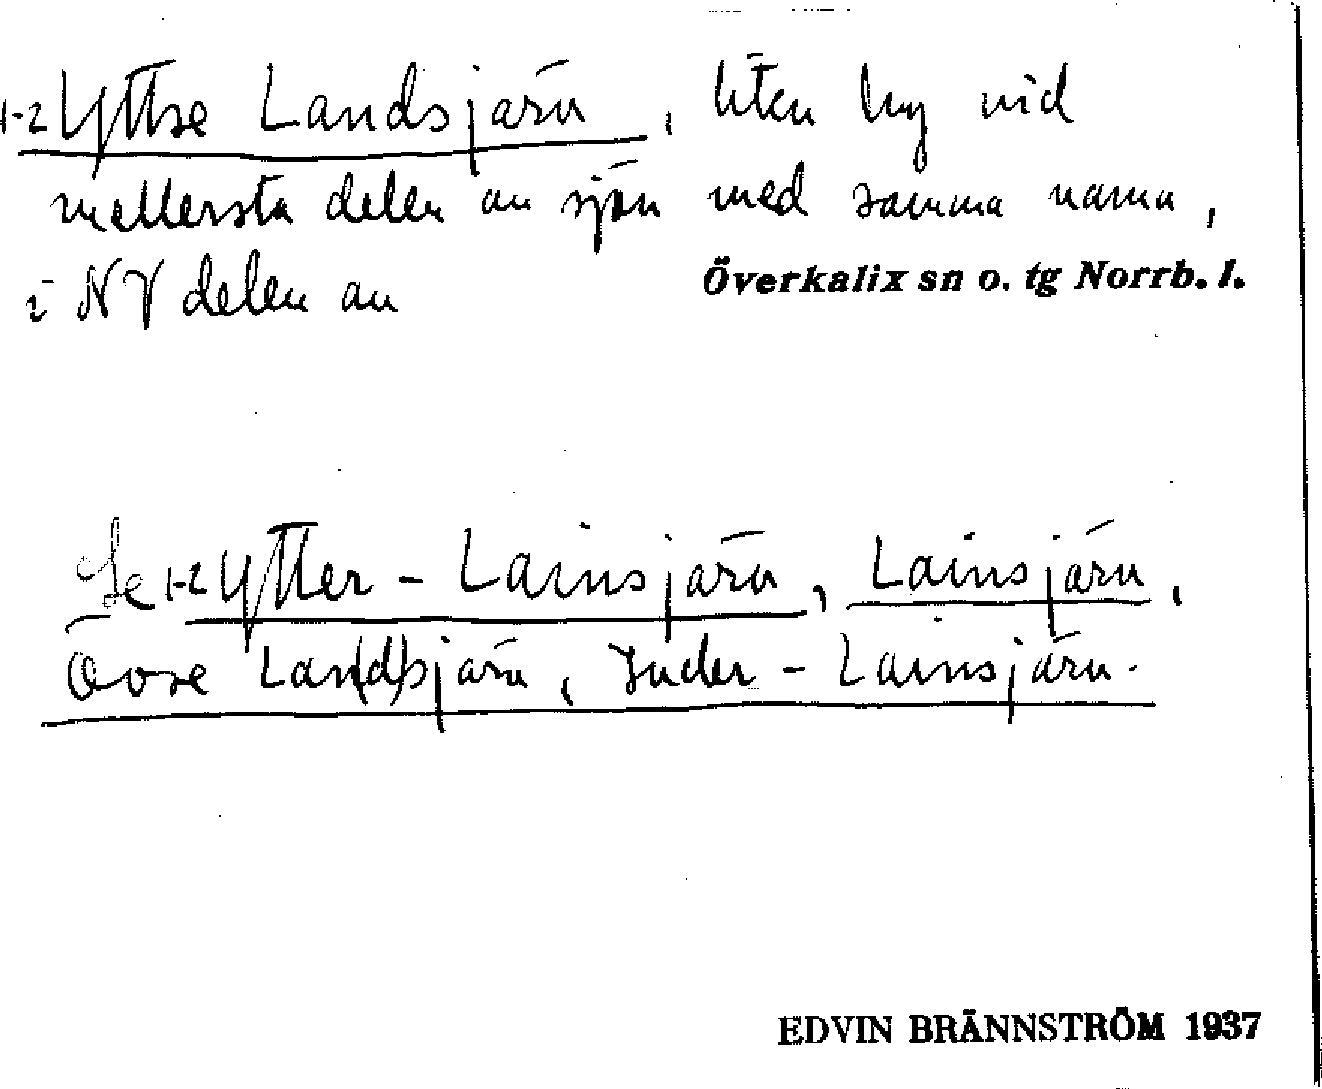 1-2 Yttre Landsjärv, liten by vid
mellersta delen av sjön med samma namn,
i NV delen av Överkalix sn o. tg Norrb. l.
Se 1-2 Ytter-Lainsjärv, Lainsjärv,
Övre Lan(d)sjärv, Inder-Lainsjärv.
EDVIN BRÄNNSTRÖM 1937